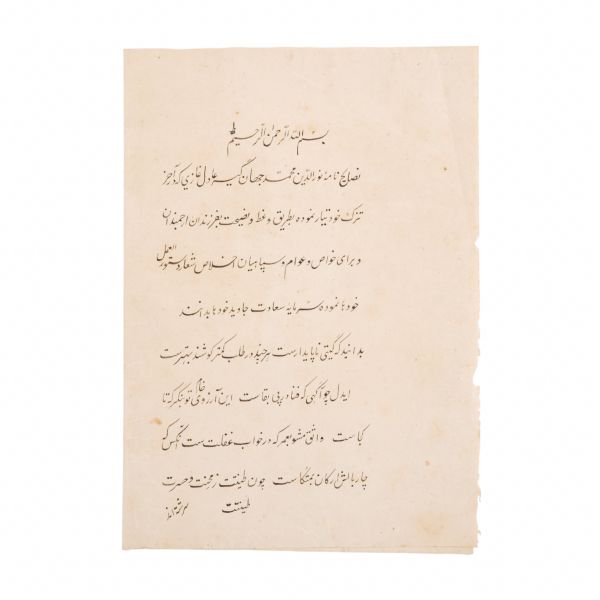 بسم الله الرحمن الرحیم
نصایح نامه نورالدین محمد جهان گیر عادل غازی که آخر
تزک خود تیار نموده بطریق وعظ و نصیحت بفرزندان ارجمندان
و برای خواص و عوام و سپاهیان اخلاص شعار دستور العمل
خود ها نموده سرمایه سعادت جاوید خود ها بدانند
بدانید که گیتی ناپایدارست هر چند در طلب کمتر کوشند بهترست
ایدل چو آگهی که فنا در پی بقاست این آرزوی خام تو بنگر که تا
کجاست واثق مشو بعمر که در خواب غفلت ست آنکس که
چار بالش ارکان بمتکاست چون طینتت ز محنت و حسرت
طینتت